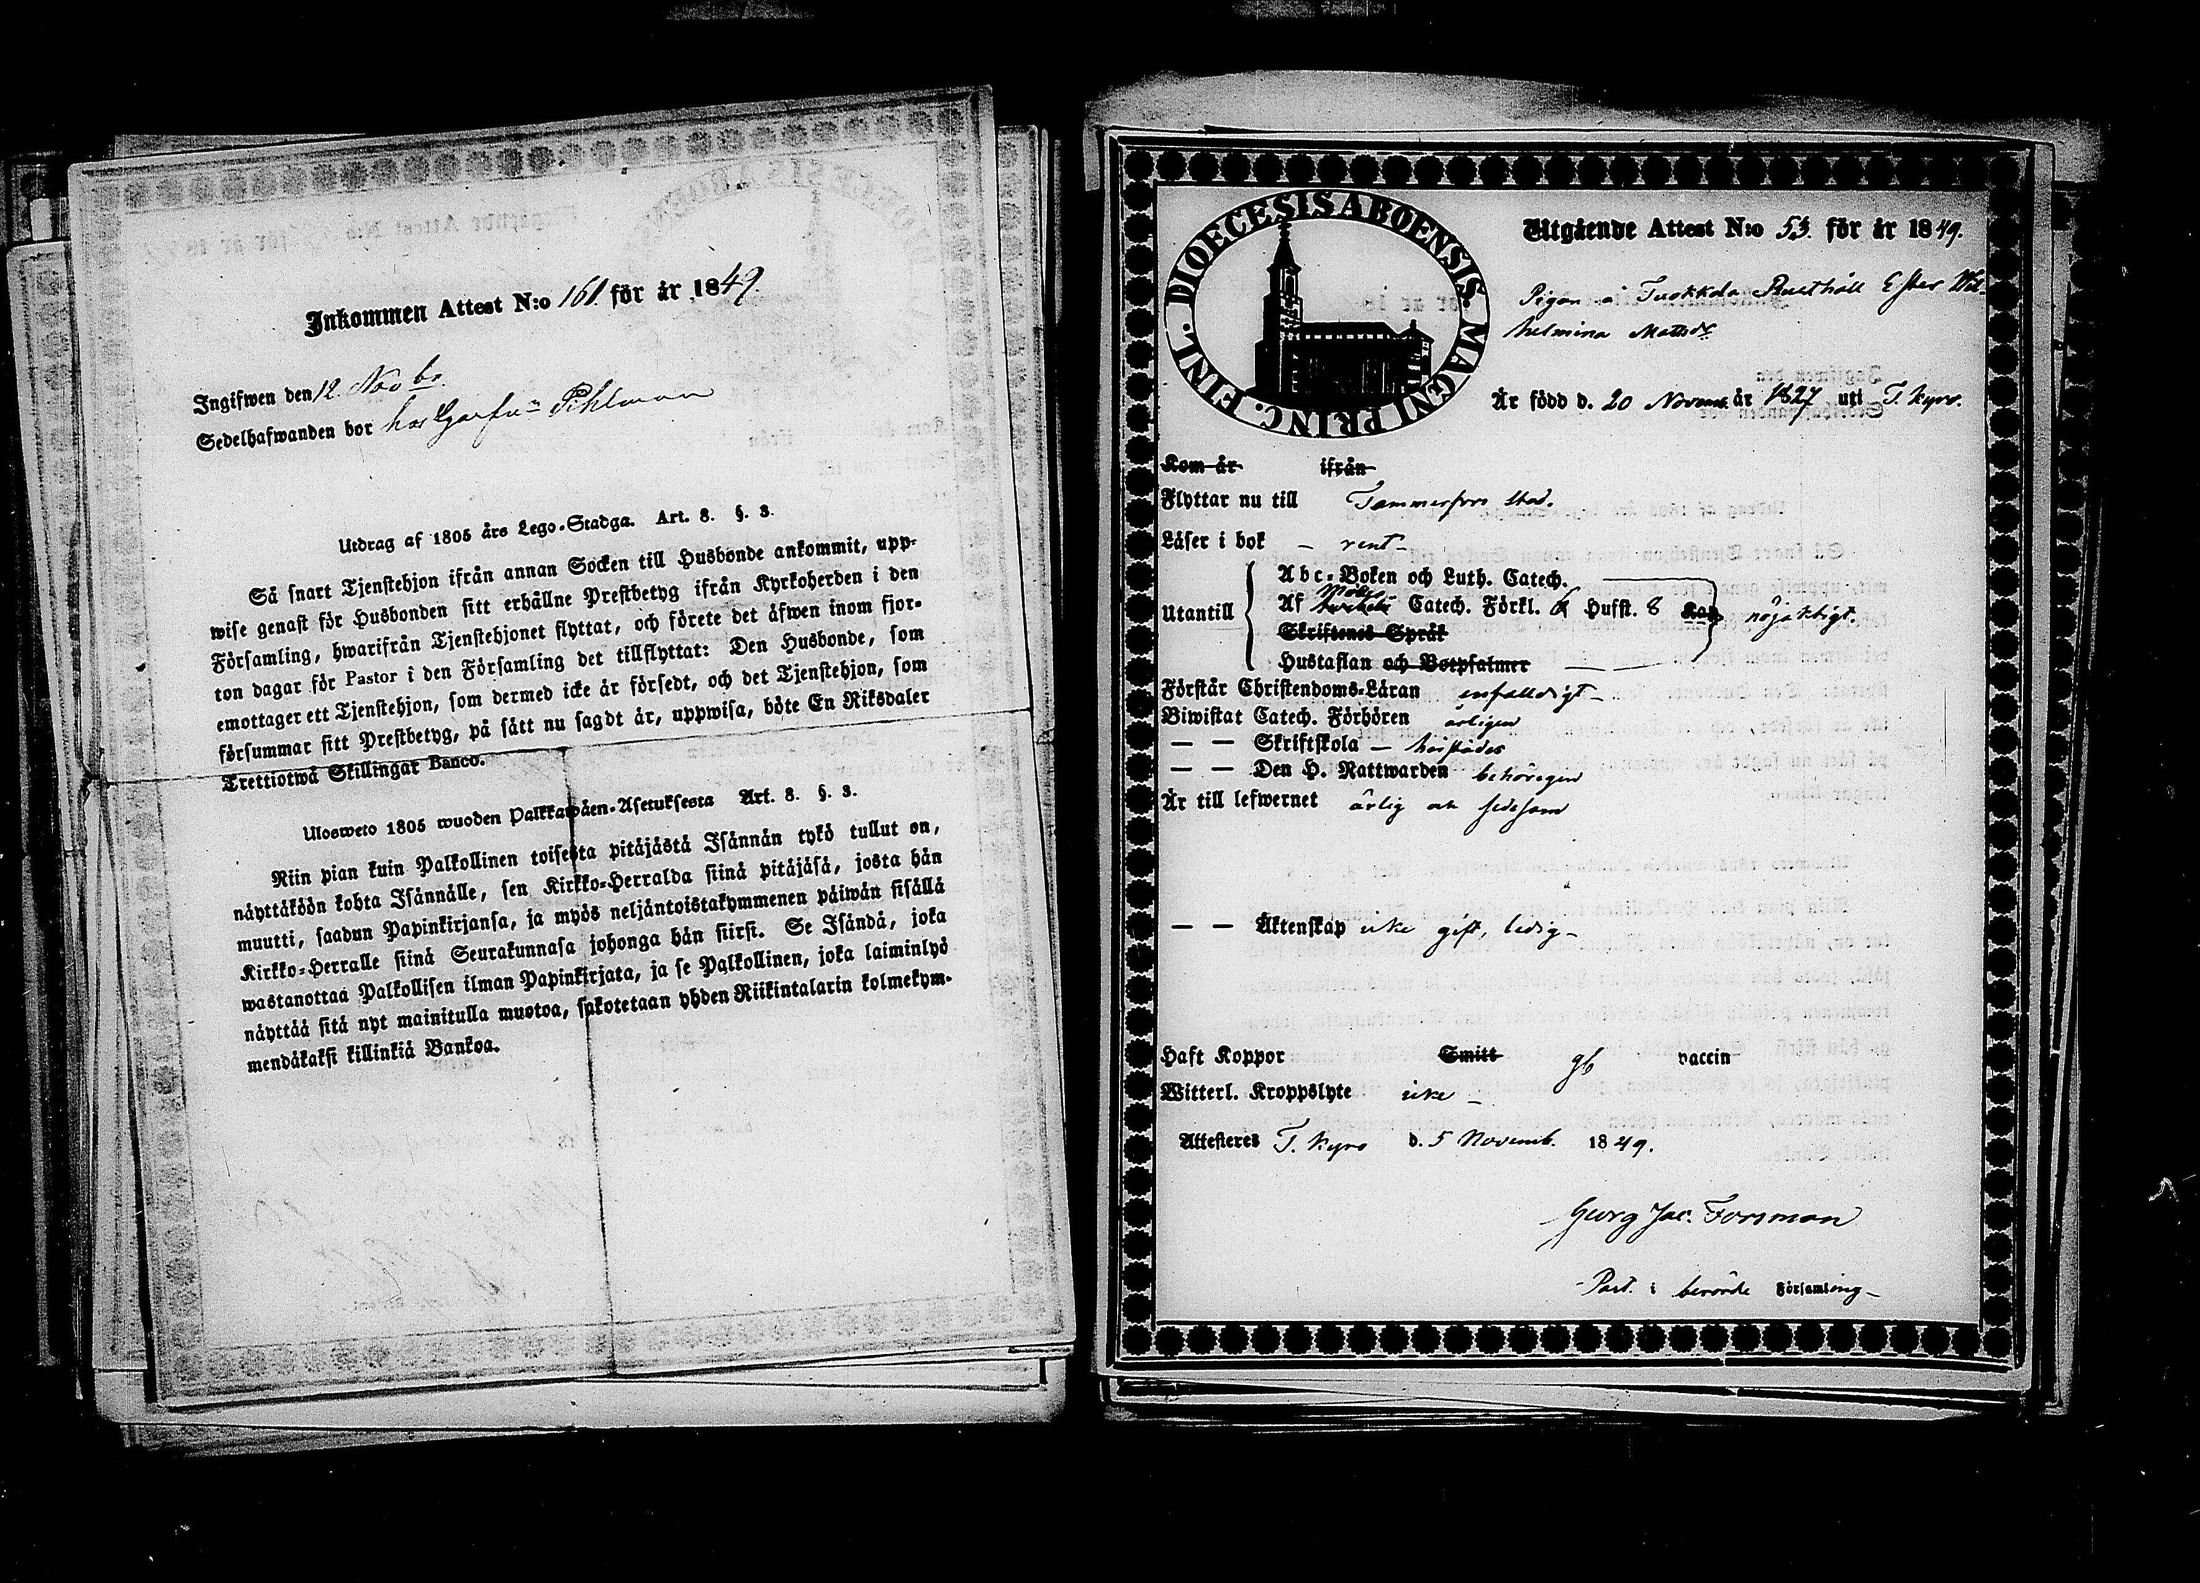 Inkommen Attest N:o 161 för år 1849.
Ingifwen den 12. Novbr.
Sedelhafwanden bor hos Garfvn Pihlman
Utdrag af 1805 års Lego-Stadga. Art. 8. §. 3.
Så snart Tjenstehjon ifrån annan Socken till Husbonde ankommit, upp-
wise genast för Husbonden sitt erhållne Prestbetyg ifrån Kyrkoherden i den
Församling, hwarifrån Tjenstehjonet flyttat, och förete det äfwen inom fjor-
ton dagar för Pastor i den Församling det tillflyttat: Den Husbonde, som
emottager ett Tjenstehjon, som dermed icke är försedt, och det Tjenstehjon, som
försummar sitt Prestbetyg, på sätt nu sagdt är, uppwisa, böte En Riksdaler
Trettiotwå Skillingar Banco.
Ulosweto 1805 wuoden Palkkawäen-Asetuksesta Art. 8. §. 3.
Niin pian kuin Palkollinen toisesta pitäjästä Isännän tykö tullut on,
näyttäköön kohta Isännälle, sen Kirkko-Herralda siinä pitäjäsä, josta hän
muutti, saadun Papinkirjansa, ja myös neljäntoistakymmenen päiwän sisällä
Kirkko-Herralle siinä Seurakunnasa johonga hän siirsi. Se Isändä, joka
wastanottaa Palkollisen ilman Papinkirjata, ja se Palkollinen, joka laiminlyö
näyttää sitä nyt mainitulla muotoa, sakotetaan yhden Riikintalarin kolmekym-
mendäkaksi killinkiä Bankoa.
DIOECESIS ABOENSIS. MAGNI PRINC. FINL.
Utgående Attest N:o 53. för år 1849.
Pigan å Tuokkola Rusthåll Ester Wil-
helmina Mattsdr
Är född d. 20 Novemb. år 1827 uti T. Kyro.
Kom år ifrån
Flyttar nu till Tammerfors Stad.
Läser i bok – rent
Utantill
Abc-Boken och Luth. Catech.
Af Catech. Förkl. 6 Hufst. 8 Kap nöjaktigt.
Skriftenes Språk
Hustaflan och Botpsalmer
Förstår Christendoms-Läran enfaldigt –
Biwistat Catech. Förhören årligen
— — Skriftskola –
— — Den H. Nattwarden behörigen
Är till lefwernet ärlig och sedesam
— — Äktenskap icke gift, ledig –
Haft Koppor Smitt gb vaccin
Witterl. Kroppslyte icke –
Attesteres T. Kyro d. 5 Novemb. 1849.
Georg Jac. Forsman
Past. i berörde Församling –